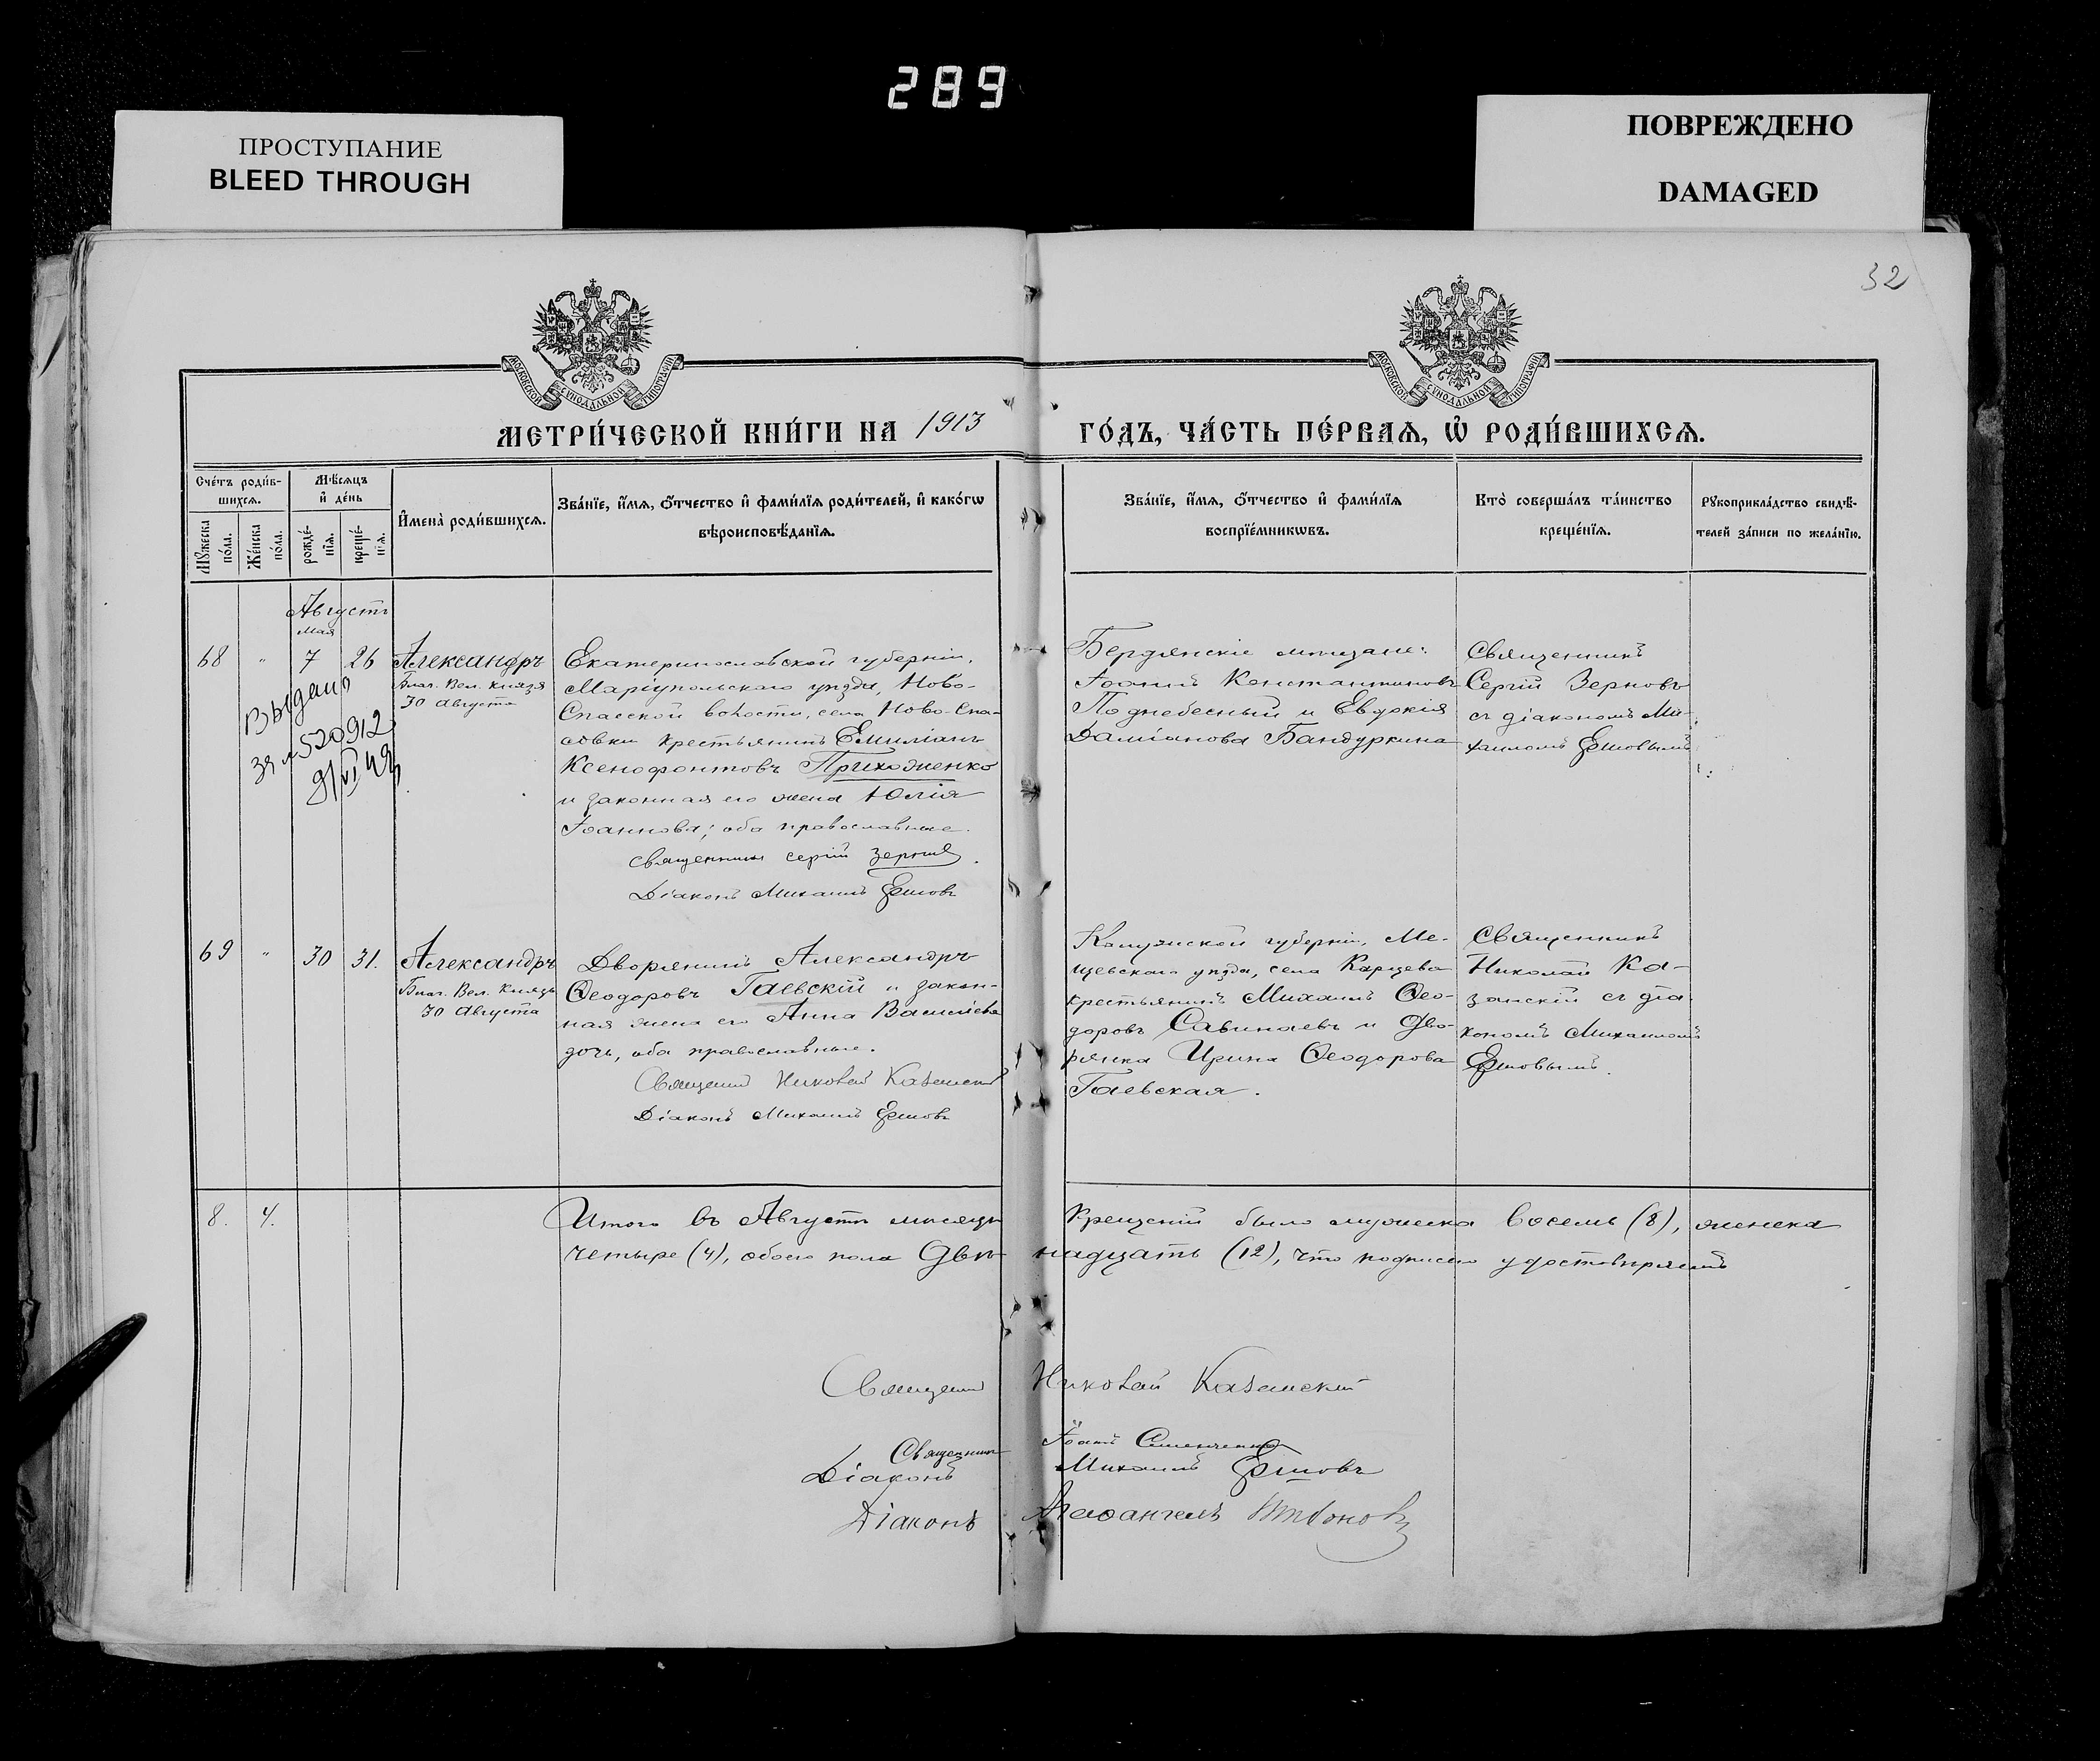 289
ПРОСТУПАНИЕ
BLEED THROUGH
ПОВРЕЖДЕНО
DAMAGED
32
МОСКОВСКОЙ СУНОДАЛЬНОЙ ТИПОГРАФІИ
МОСКОВСКОЙ СУНОДАЛЬНОЙ ТИПОГРАФІИ
МЕТРИ́ЧЕСКОЙ КНИ́ГИ НА 1913 ГО́ДЪ, ЧА́СТЬ ПЕ́РВАѦ, Ѡ҆ РОДИ́ВШИХСѦ.
Сче́тъ роди́в-
шихсѧ.
Мꙋжеска по́ла.
Же́нска пола.
Мѣсѧцъ
и҆ де́нь
рожде́-
нїѧ.
креще́-
нїѧ.
И҆мена̀ роди́вшихсѧ.
Зва́нїе, и҆́мѧ, ѻ҆́тчество и҆ фами́лїѧ роди́телей, и҆ како́гѡ
вѣроисповѣ́данїѧ.
Зва́нїе, и҆́мѧ, ѻ҆́тчество и҆ фами́лїѧ
воспрїе́мникѡвъ.
Кто̀ соверша́лъ та́инство
креще́нїѧ.
Рꙋкоприкла́дство свидѣ́-
телей за́писи по жела́нїю.
Августъ
мая
68 " 7 26
Александръ
Благ. Вел. Князя
30 Августа
Выдано
за № 520912
9/VI 49
Екатеринославской губерніи,
Маріупольскаго уѣзда, Ново-
Спасской волости, села Ново-Спа-
совки крестьянинъ Емиліанъ
Ксенофонтовъ Приходженко
и законная его жена Юлія
Іоаннова; оба православные.
Священникъ Сергій Зерновъ
Діаконъ Михаилъ Ершовъ
Бердянскіе мѣщане:
Іоаннъ Константиновъ
Поднебесный и Евдокія
Даміанова Бандуркина
Священникъ
Сергій Зерновъ
съ діакономъ Ми-
хаиломъ Ершовымъ
69 " 30 31.
Александръ
Благ. Вел. Князь
30 Августа
Дворянинъ Александръ
Ѳеодоровъ Гаевскій и закон-
ная жена его Анна Василіева
дочь, оба православные.
Священникъ Николай Казанскій
Діаконъ Михаилъ Ершовъ
Калужской губерніи, Ме-
щевскаго уѣзда, села Карцева
крестьянинъ Михаилъ Ѳео-
доровъ Савинаевъ и Дво-
рянка Ирина Ѳеодорова
Гаевская.
Священникъ
Николай Ка-
занскій съ діа-
кономъ Михаиломъ
Ершовымъ.
8. 4.
Итого въ Августѣ мѣсяцѣ крещеній было мужеска восемь (8), женска
четыре (4), обоего пола двѣ- надцать (12), что подписью удостовѣряемъ
Священникъ Николай Казанскій
Священникъ Іоаннъ
Діаконъ Михаилъ Ершовъ
Діаконъ Агафангелъ